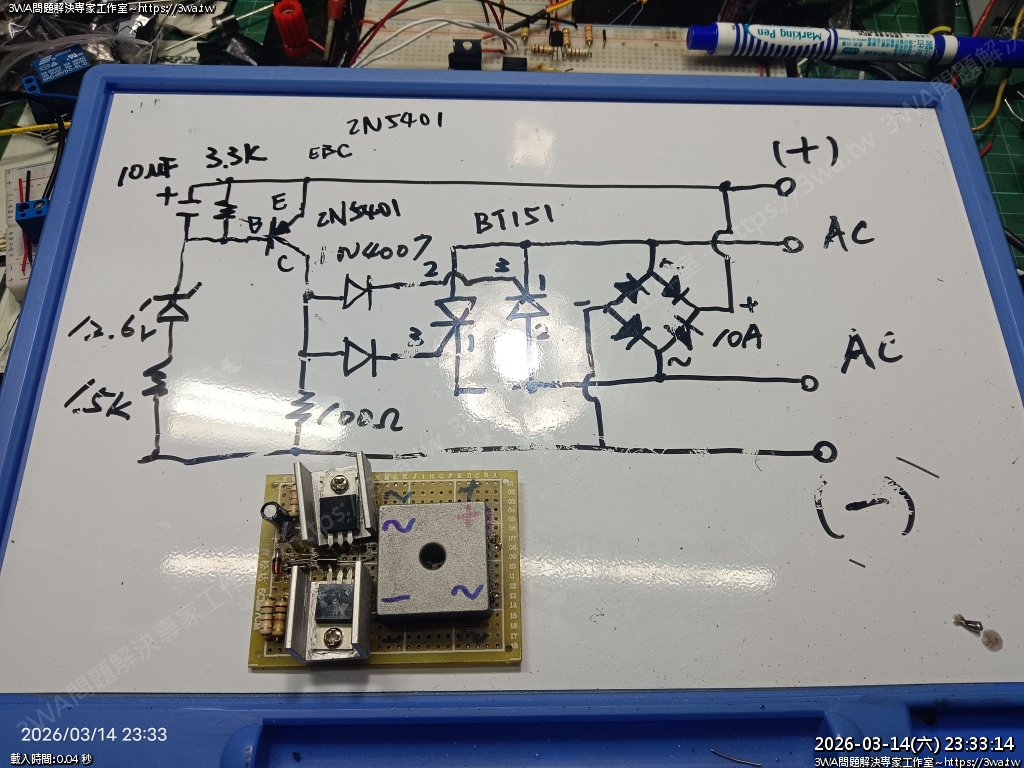 3WA問題解決專家工作室~https://3wa.tw
3WA問題解決專家工作室~https://3wa.tw
Marking Pen
2N5401
EBC
10uF
3.3K
(+)
+
E
B
2N5401
C
BT151
AC
1N4007
2
3
1
~
-
+
12.6v
3
1
2
10A
~
AC
1.5K
100Ω
(-)
2
+
2
1
2
2026/03/14 23:33
載入時間:0.04 秒
2026-03-14(六) 23:33:14
3WA問題解決專家工作室~https://3wa.tw